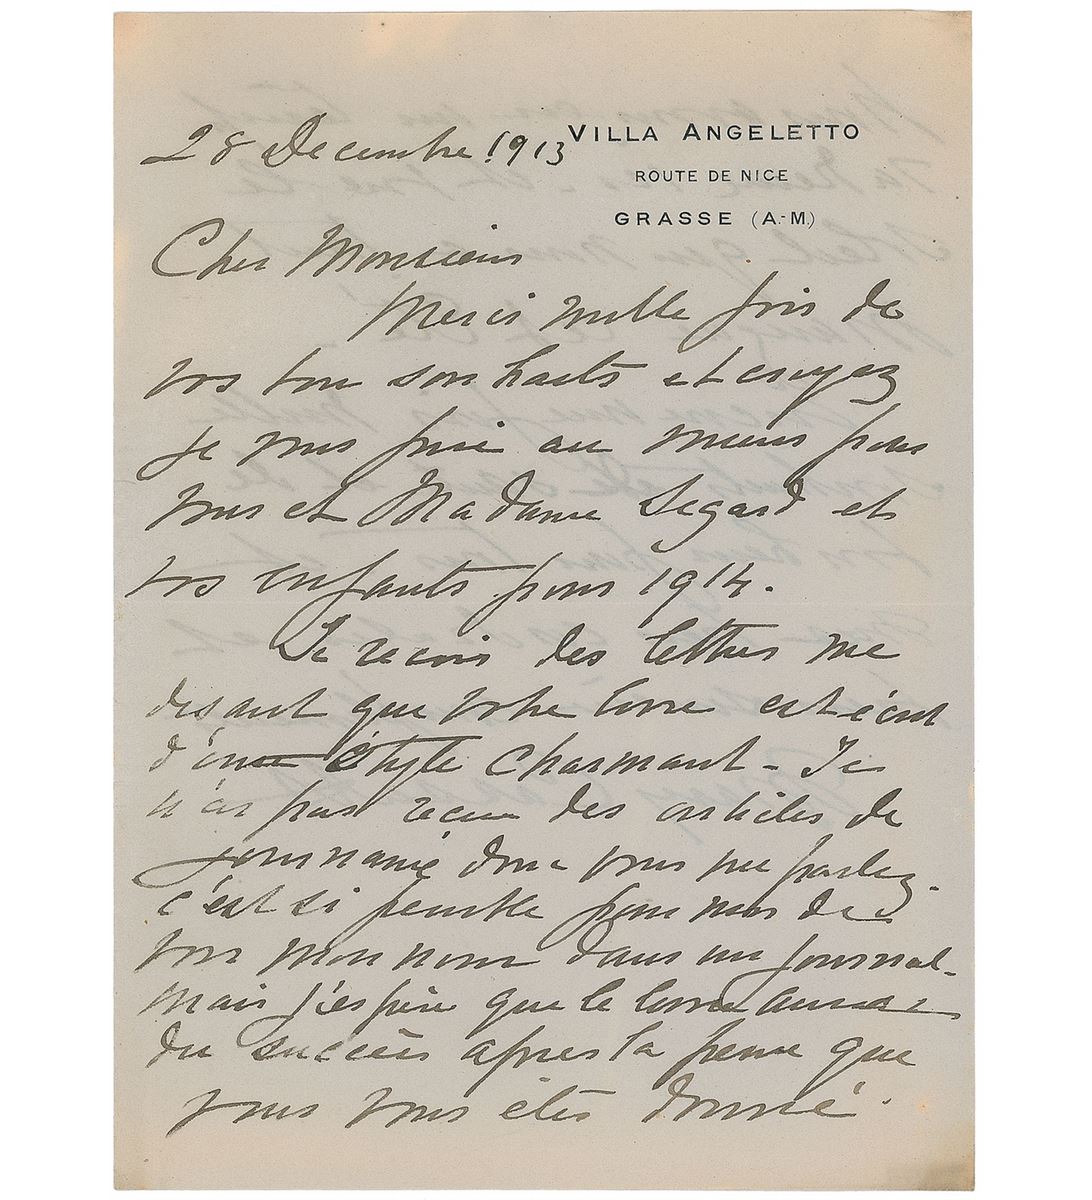 28 Decembre 1913
VILLA ANGELETTO
ROUTE DE NICE
GRASSE (A.-M.)
Cher Monsieur
Merci mille fois de
vos bon souhaits et croyez
je vous
vous et Madame Segard et
vos enfants pour 1914.
Je recois des lettres me
disant que votre livre est écrit
d'un style charmant - Je
n'ai pas recue des articles de
journaux dont vous me parlez.
c'est si penible pour moi de
voir mon nom dans un journal -
mais j'espère que le livre aura
du succès apres la peine que
vous vous etes donné.